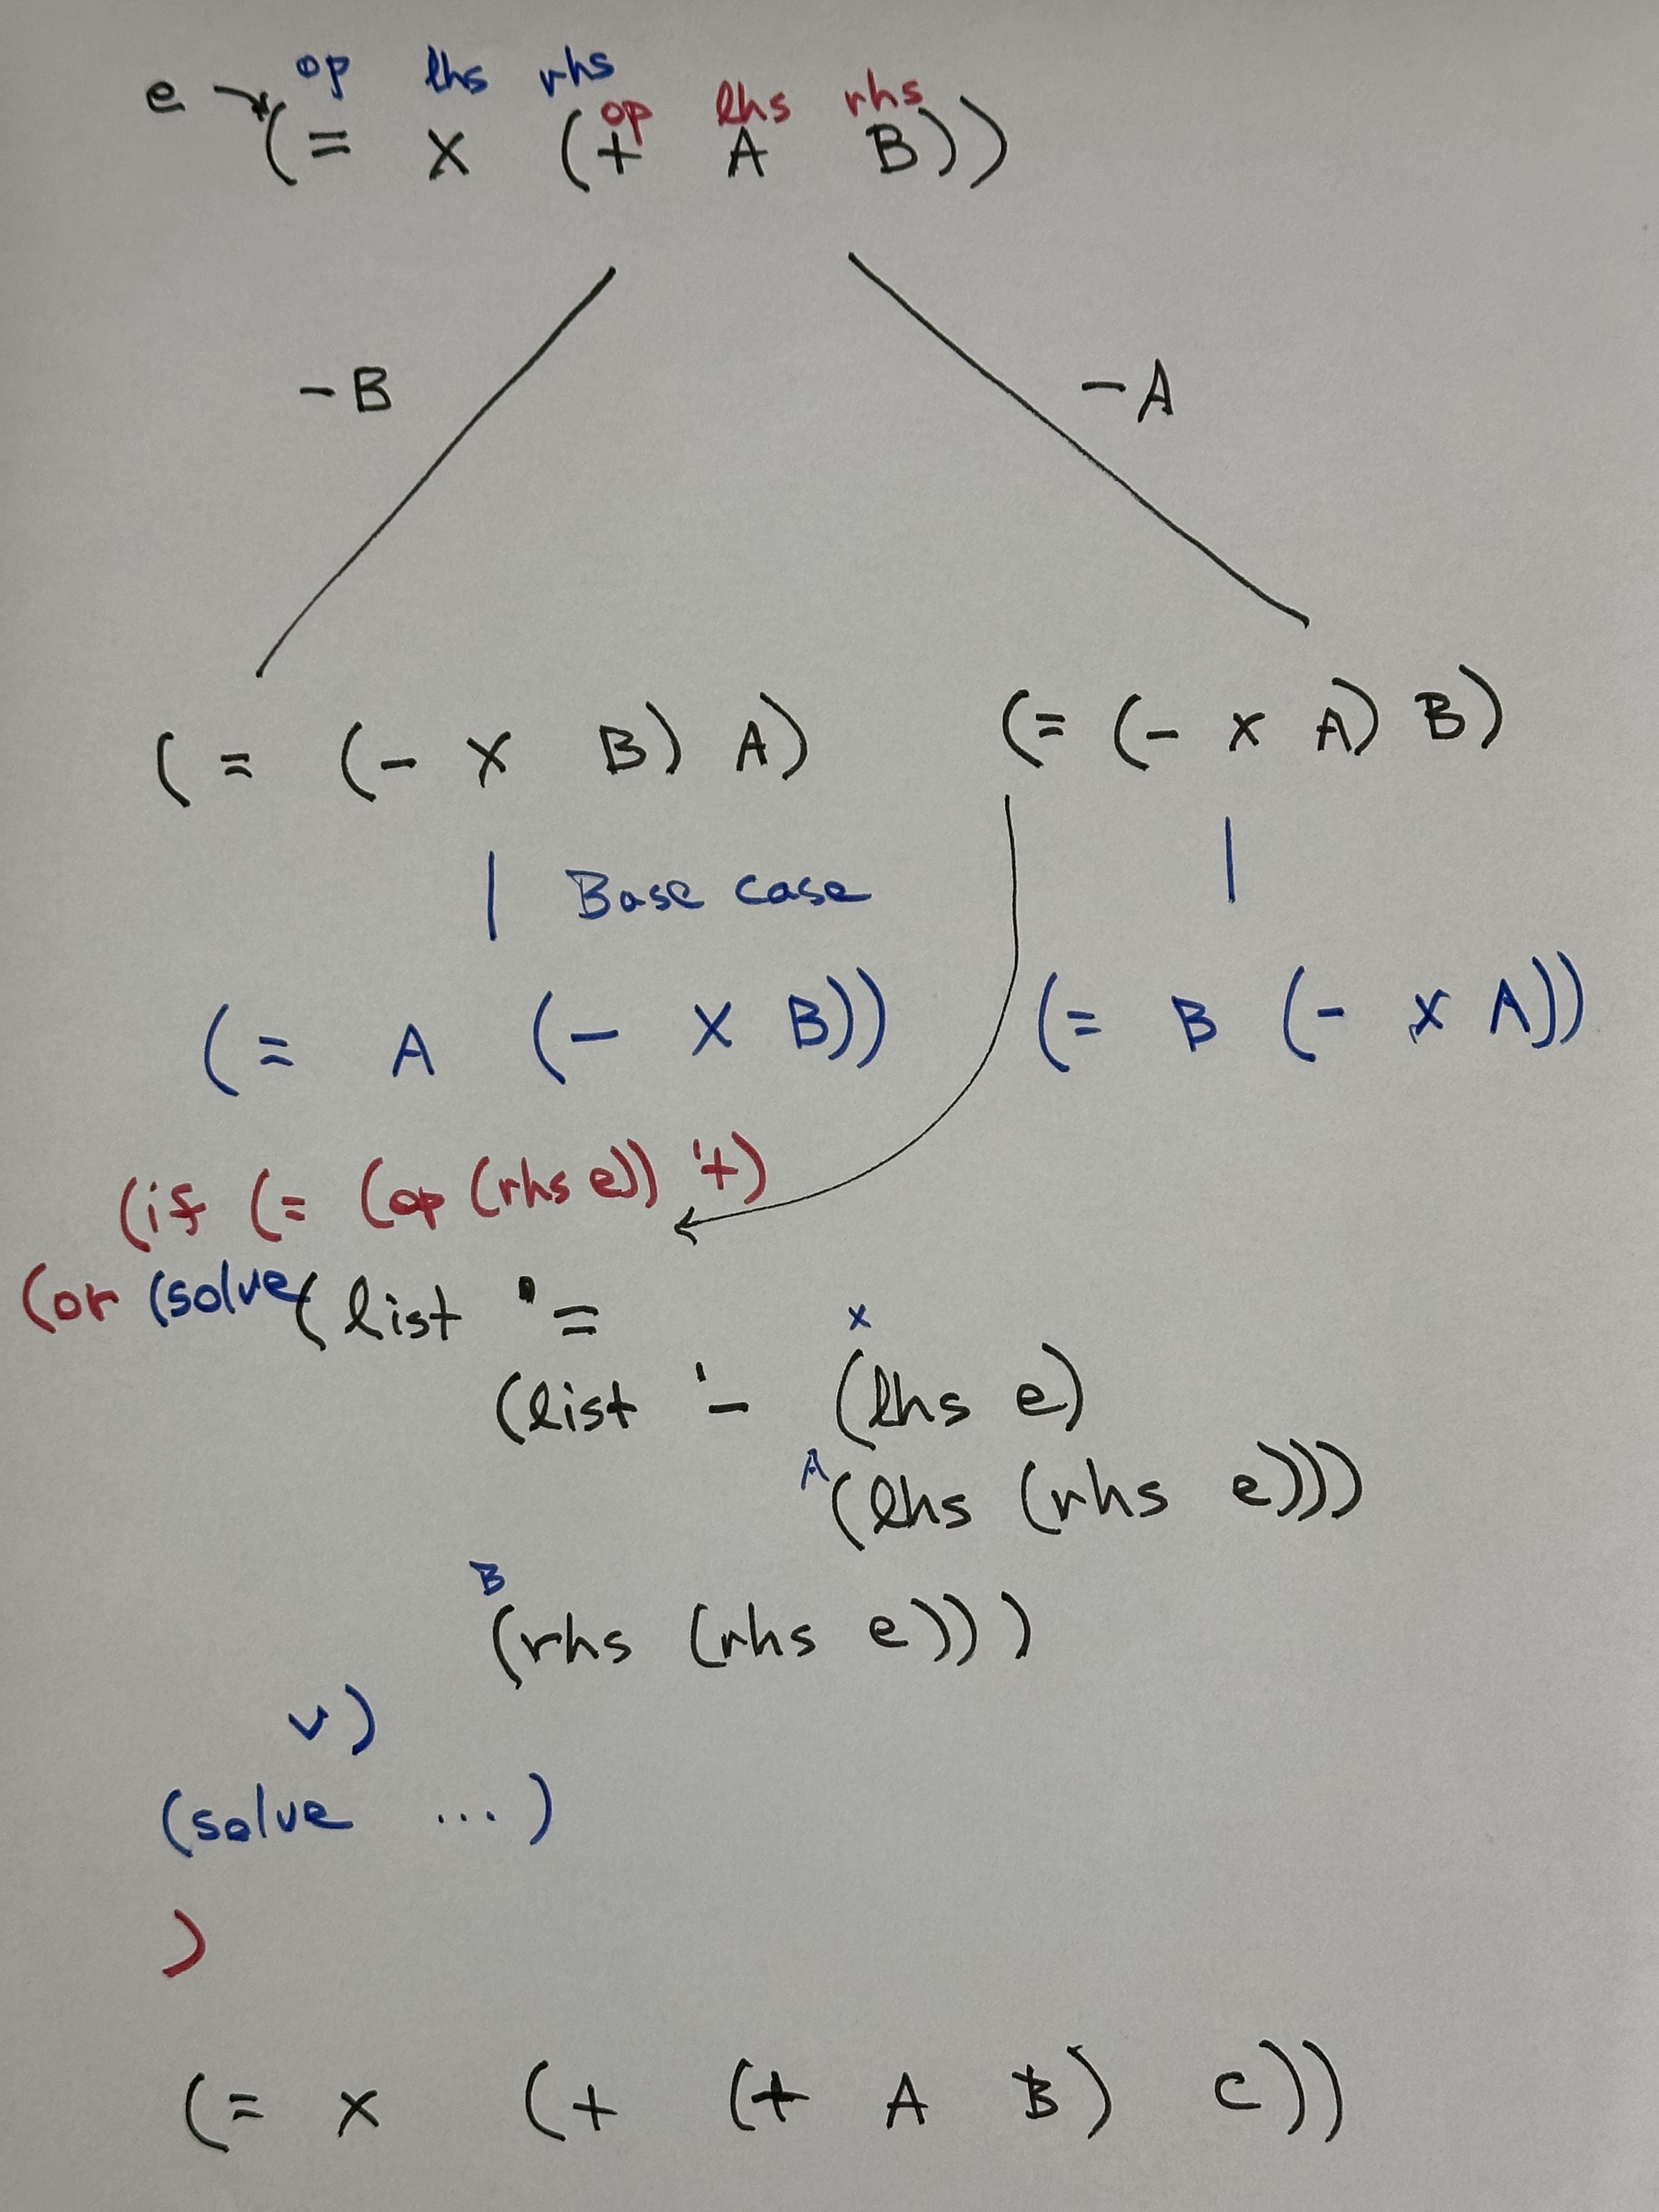 op lhs rhs
e op lhs rhs
(= x (+ A B))
-B -A
(= (- x B) A) (= (- x A) B)
Base case
(= A (- x B)) (= B (- x A))
(if (= (op (rhs e)) '+)
(or (solve (list '=
x
(list '- (lhs e)
A (lhs (rhs e)))
B
(rhs (rhs e)))
v)
(solve ...)
)
(= x (+ (+ A B) C))